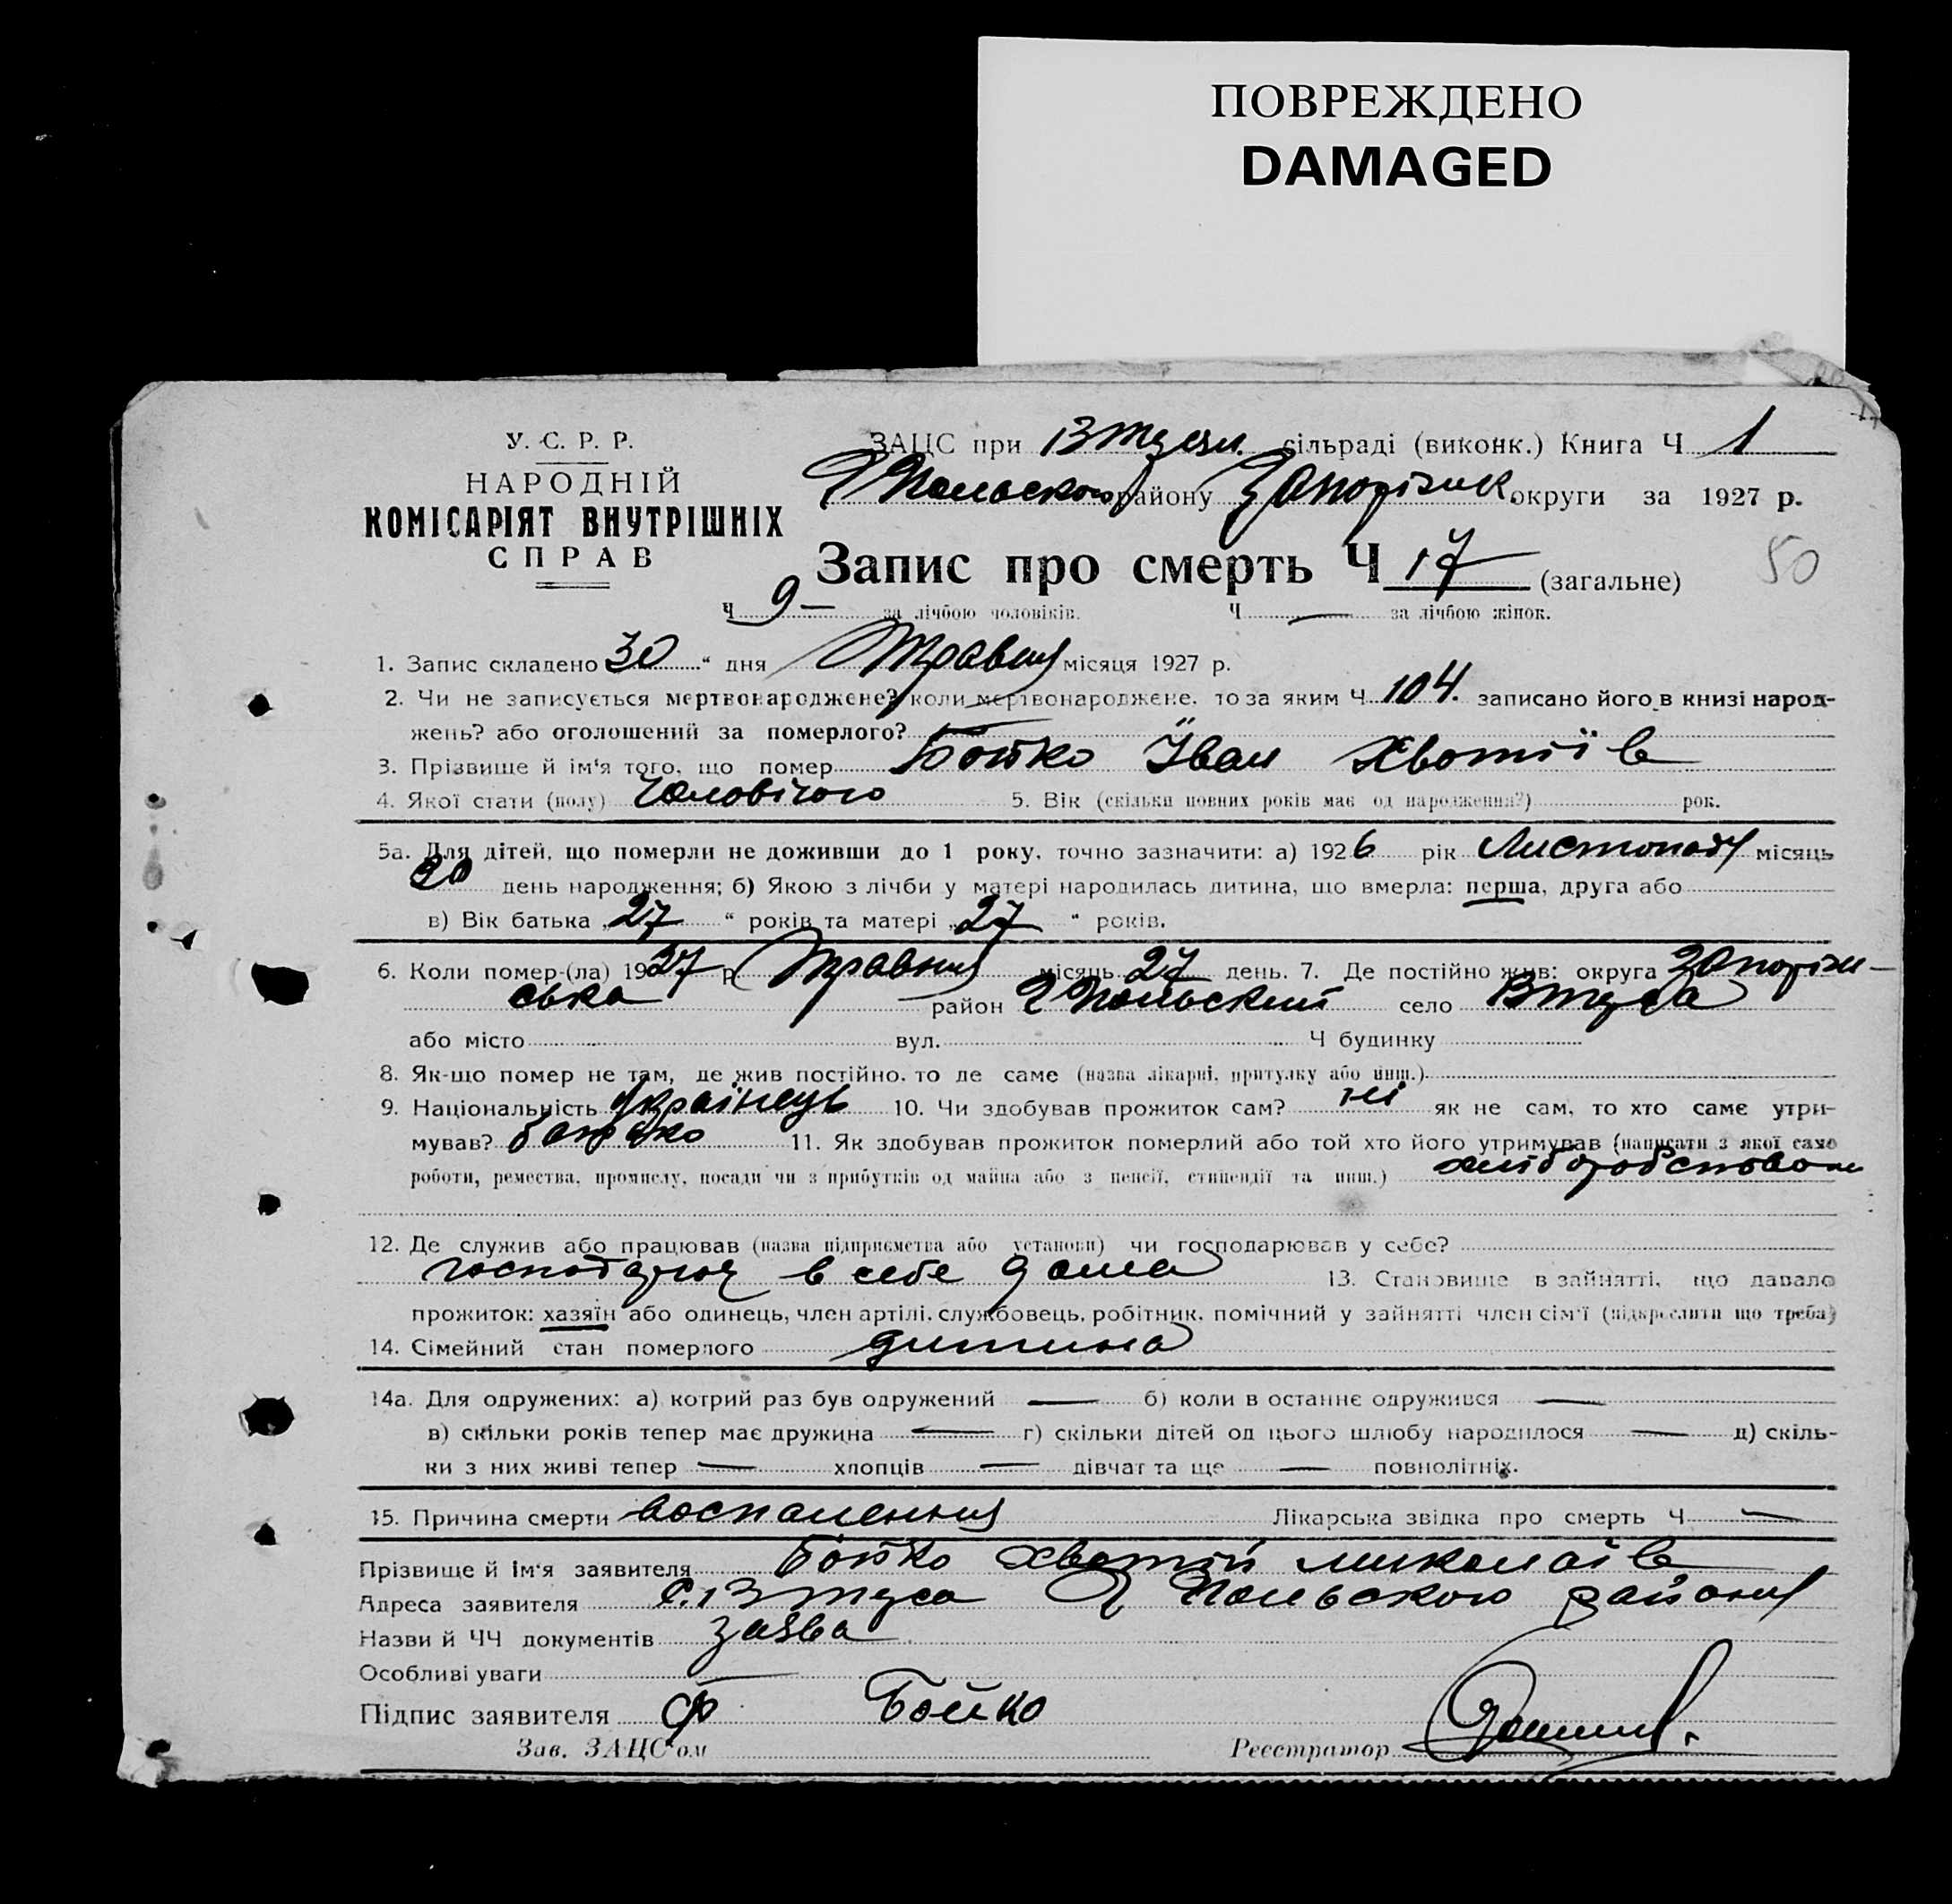 ПОВРЕЖДЕНО
DAMAGED
У. С. Р. Р.
НАРОДНІЙ
КОМІСАРІЯТ ВНУТРІШНІХ
СПРАВ
ЗАЦС при сільраді (виконк.) Книга Ч 1
району Запоріжск округи за 1927 р.
Запис про смерть Ч 17 (загальне)
50
Ч 9 — за лічбою чоловіків. Ч — за лічбою жінок.
1. Запис складено 30 “ дня Травня місяця 1927 р.
2. Чи не записується мертвонароджене? коли мертвонароджене, то за яким Ч 104. записано його в книзі народ-
жень? або оголошений за померлого?
3. Прізвище й ім‘я того, що помер Бойко Іван Хвотіїв
4. Якої стати (полу) Чоловічого 5. Вік (скільки повних років має од народження?) рок.
5а. Для дітей, що померли не доживши до 1 року, точно зазначити: а) 1926 рік Листопаду місяць
30 день народження; б) Якою з лічби у матері народилась дитина, що вмерла: перша, друга або
в) Вік батька „27“ років та матері „27“ років.
6. Коли помер-(ла) 1927 р. Травня місяць 27 день. 7. Де постійно жив: округа Запоріж-
ська район село Втуса
або місто вул. Ч будинку
8. Як-що помер не там, де жив постійно, то де саме (назва лікарні, притулку або инш.)
9. Національність Українець 10. Чи здобував прожиток сам? ні як не сам, то хто саме утри-
мував? батько 11. Як здобував прожиток померлий або той хто його утримував (написати з якої саме
роботи, ремества, промислу, посади чи з прибутків од майна або з пенсії, стипендії та инш.) хліборобством
12. Де служив або працював (назва підприємства або установи) чи господарював у себе?
господарює в себе дома 13. Становище в зайнятті, що давало
прожиток: хазяїн або одинець, член артілі, службовець, робітник, помічний у зайнятті член сім‘ї (підкреслити що треба)
14. Сімейний стан померлого дитина
14а. Для одружених: а) котрий раз був одружений — б) коли в останнє одружився —
в) скільки років тепер має дружина — г) скільки дітей од цього шлюбу народилося — д) скіль-
ки з них живі тепер — хлопців — дівчат та ще — повнолітніх.
15. Причина смерти воспаления Лікарська звідка про смерть Ч —
Прізвище й Ім‘я заявителя Бойко Хвотій Миколаїв
Адреса заявителя с. Втуса Польского району
Назви й ЧЧ документів заява
Особливі уваги —
Підпис заявителя Ф Бойко
Зав. ЗАЦС‘ом Реєстратор